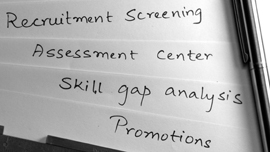 Recruitment Screening
Assessment Center
Skill gap analysis
Promotions